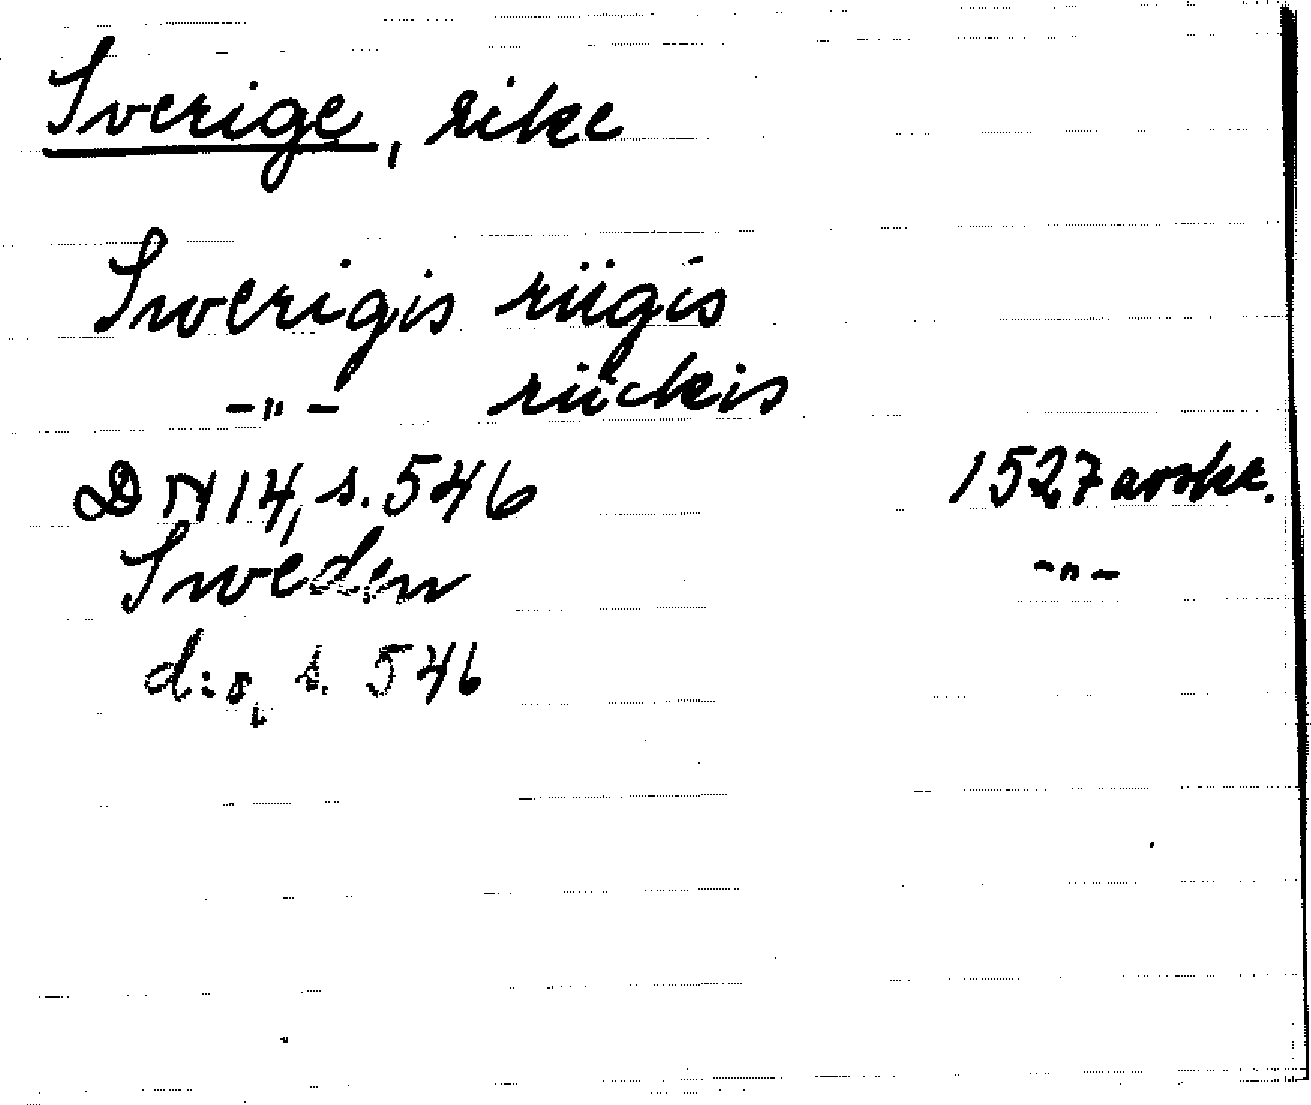 Sverige, rike
Swerigis riigis
-"- riickis
DN 14, s. 546 1527 avskr.
Sweden -"-
d:o, s. 546